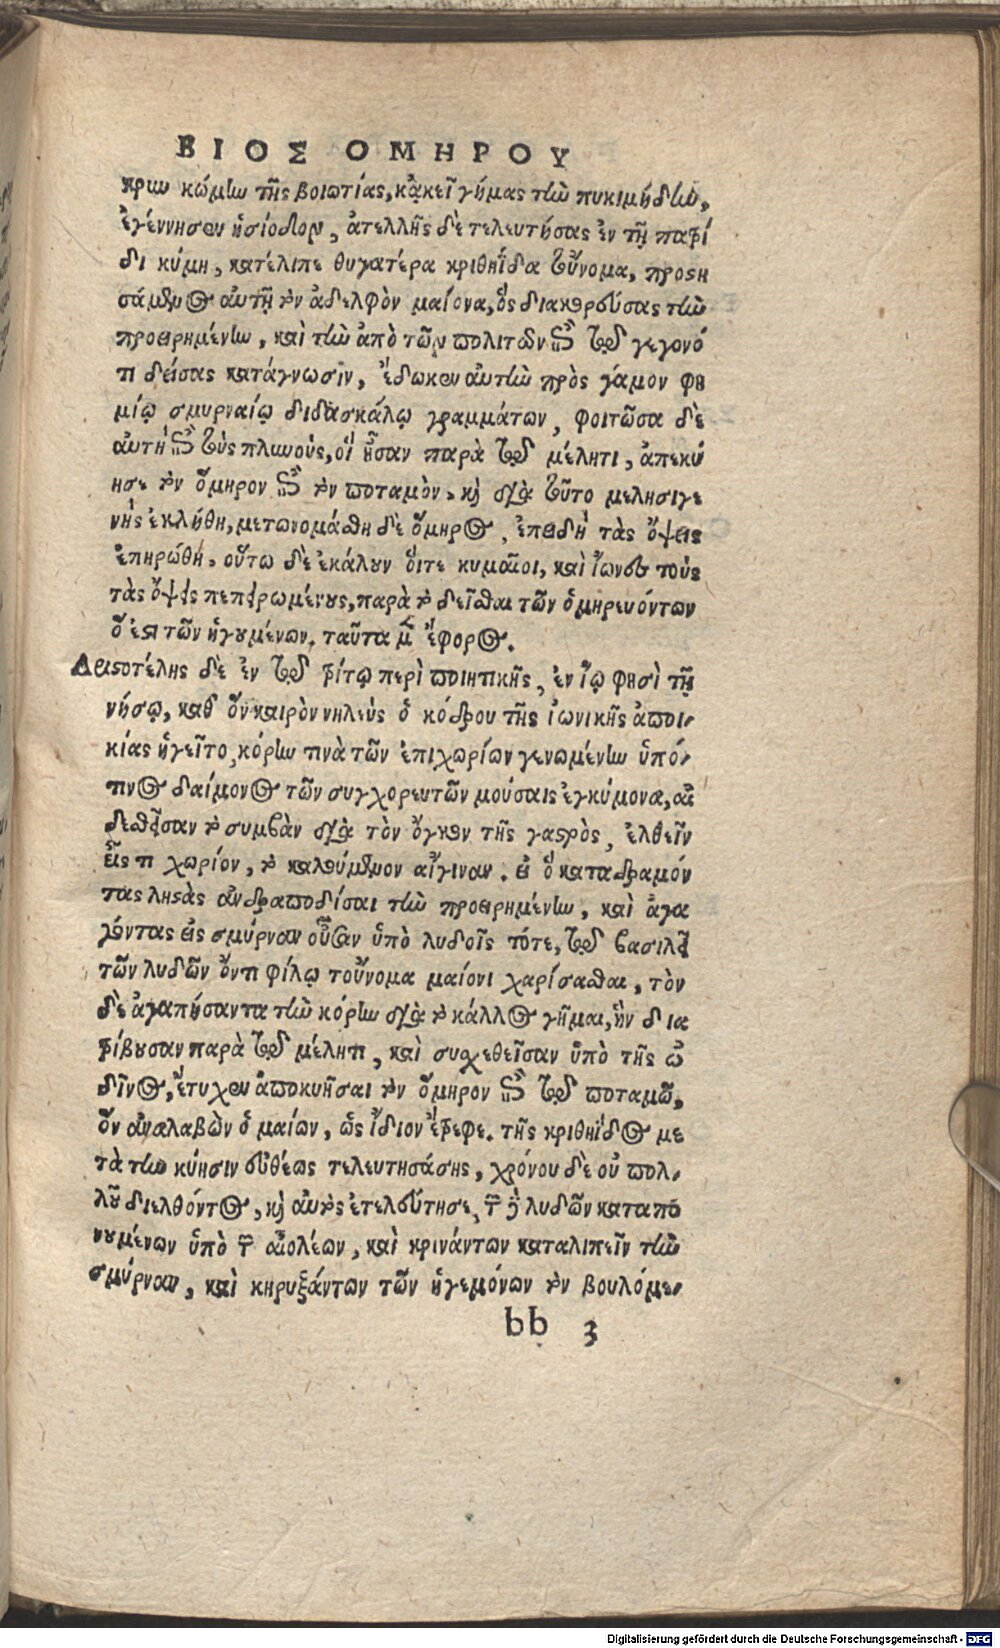 ΒΙΟΣ ΟΜΗΡΟΥ
κρην κώμην τῆς βοιωτίας, κἀκεῖ γήμας τὴν πυκιμήδην,
ἐγέννησεν ἡσίοδον, ἀτελλῆς δὲ τελευτήσας ἐν τῇ πατρί
δι κύμῃ, κατέλιπε θυγατέρα κριθηΐδα τοὔνομα, προστη
σάμενος αὐτῇ τὸν ἀδελφὸν μαίονα, ὃς διακορεύσας τὴν
προειρημένην, καὶ τὴν ἀπὸ τῶν πολιτῶν ἐπὶ τῷ γεγονό
τι δείσας κατάγνωσιν, ἔδωκεν αὐτὴν πρὸς γάμον φη
μίῳ σμυρναίῳ διδασκάλῳ γραμμάτων, φοιτῶσα δὲ
αὐτὴ ἐπὶ τοὺς πλυνοὺς, οἳ ἦσαν παρὰ τῷ μέλητι, ἀπεκύ
ησε τὸν ὅμηρον ἐπὶ τὸν ποταμὸν, καὶ διὰ τοῦτο μελησιγε
νὴς ἐκλήθη, μετωνομάσθη δὲ ὅμηρος, ἐπειδὴ τὰς ὄψεις
ἐπηρώθη, οὕτω δὲ ἐκάλουν οἵ τε κυμαῖοι, καὶ ἴωνες τοὺς
τὰς ὄψεις πεπηρωμένους, παρὰ τὸ δεῖσθαι τῶν ὁμηρευόντων
ὅ ἐστι τῶν ἡγουμένων, ταῦτα μὲν ἔφορος.
Ἀριστοτέλης δὲ ἐν τῷ τρίτῳ περὶ ποιητικῆς, ἐν ἴῳ φησὶ τῇ
νήσῳ, καθ ὃν καιρὸν νηλεὺς ὁ κόδρου τῆς ἰωνικῆς ἀποι-
κίας ἡγεῖτο, κόρην τινὰ τῶν ἐπιχωρίων γενωμένην ὑπό-
τινος δαίμονος τῶν συγχορευτῶν μούσαις ἐγκύμονα, αἰ
δεσθεῖσαν τὸ συμβὰν διὰ τὸν ὄγκον τῆς γαστρὸς, ἐλθεῖν
εἴς τι χωρίον, τὸ καλούμενον αἴγιναν. εἰ ὃ καταδραμόν
τας λῃστὰς ἀνδραποδίσαι τὴν προειρημένην, καὶ ἀγα
γόντας εἰς σμύρναν οὖσαν ὑπὸ λυδοῖς τότε, τῷ βασιλεῖ
τῶν λυδῶν ὄντι φίλῳ τοὔνομα μαίονι χαρίσασθαι, τὸν
δὲ ἀγαπήσαντα τὴν κόρην διὰ τὸ κάλλος γῆμαι, ἣν δια
τρίβουσαν παρὰ τῷ μέλητι, καὶ συσχεθεῖσαν ὑπὸ τῆς ὠ
δῖνος, ἔτυχεν ἀποκυῆσαι τὸν ὅμηρον ἐπὶ τῷ ποταμῷ,
ὃν ἀναλαβὼν ὁ μαίων, ὡς ἴδιον ἔτρεφε. τῆς κριθηΐδος με
τὰ τὴν κύησιν εὐθέως τελευτησάσης, χρόνου δὲ οὐ πολ-
λοῦ διελθόντος, καὶ αὐτὸς ἐτελεύτησε, τῶν δὲ λυδῶν καταπο
νουμένων ὑπὸ τῶν αἰολέων, καὶ κρινάντων καταλιπεῖν τὴν
σμύρναν, καὶ κηρυξάντων τῶν ἡγεμόνων τὸν βουλόμε-
bb 3
Digitalisierung gefördert durch die Deutsche Forschungsgemeinschaft - DFG